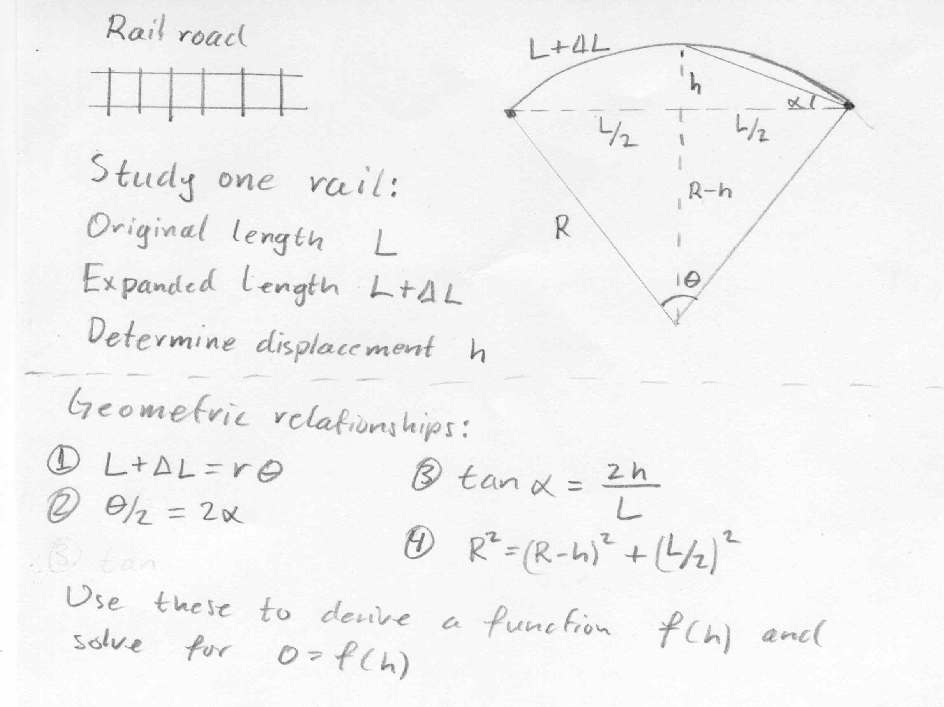 Rail road
L+ΔL
h
α
L/2
L/2
R-h
R
θ
Study one rail:
Original length L
Expanded length L+ΔL
Determine displacement h
Geometric relationships:
① L+ΔL = rθ
② θ/2 = 2α
③ tan
③ tan α = 2h/L
④ R² = (R-h)² + (L/2)²
Use these to derive a function f(h) and
solve for 0 = f(h)